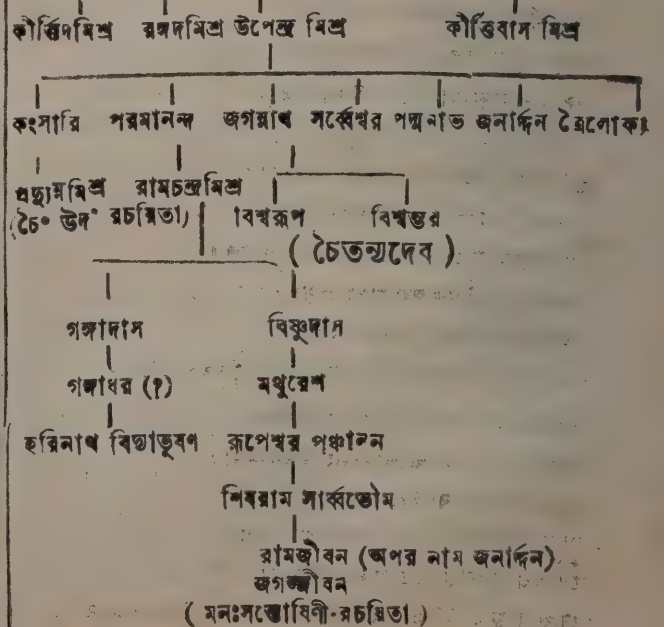 কীর্ত্তিদমিশ্র রঙ্গদমিশ্র উপেন্দ্র মিশ্র কীর্ত্তিবাস মিশ্র
কংসারি পরমানন্দ জগন্নাথ সর্ব্বেশ্বর পদ্মনাভ জনার্দ্দন ত্রৈলোক্য
প্রদ্যুম্নমিশ্র রামচন্দ্রমিশ্র
বিশ্বরূপ বিশ্বম্ভর
(চৈ॰ উদ॰ রচয়িতা)
( চৈতন্যদেব )
গঙ্গাদাস বিষ্ণুদাস
গঙ্গাধর (?) মথুরেশ
হরিনাথ বিদ্যাভূষণ রূপেশ্বর পঞ্চানন
শিবরাম সার্ব্বভৌম
রামজীবন (অপর নাম জনার্দ্দন)
জগজ্জীবন
( মনঃসন্তোষিণী-রচয়িতা )